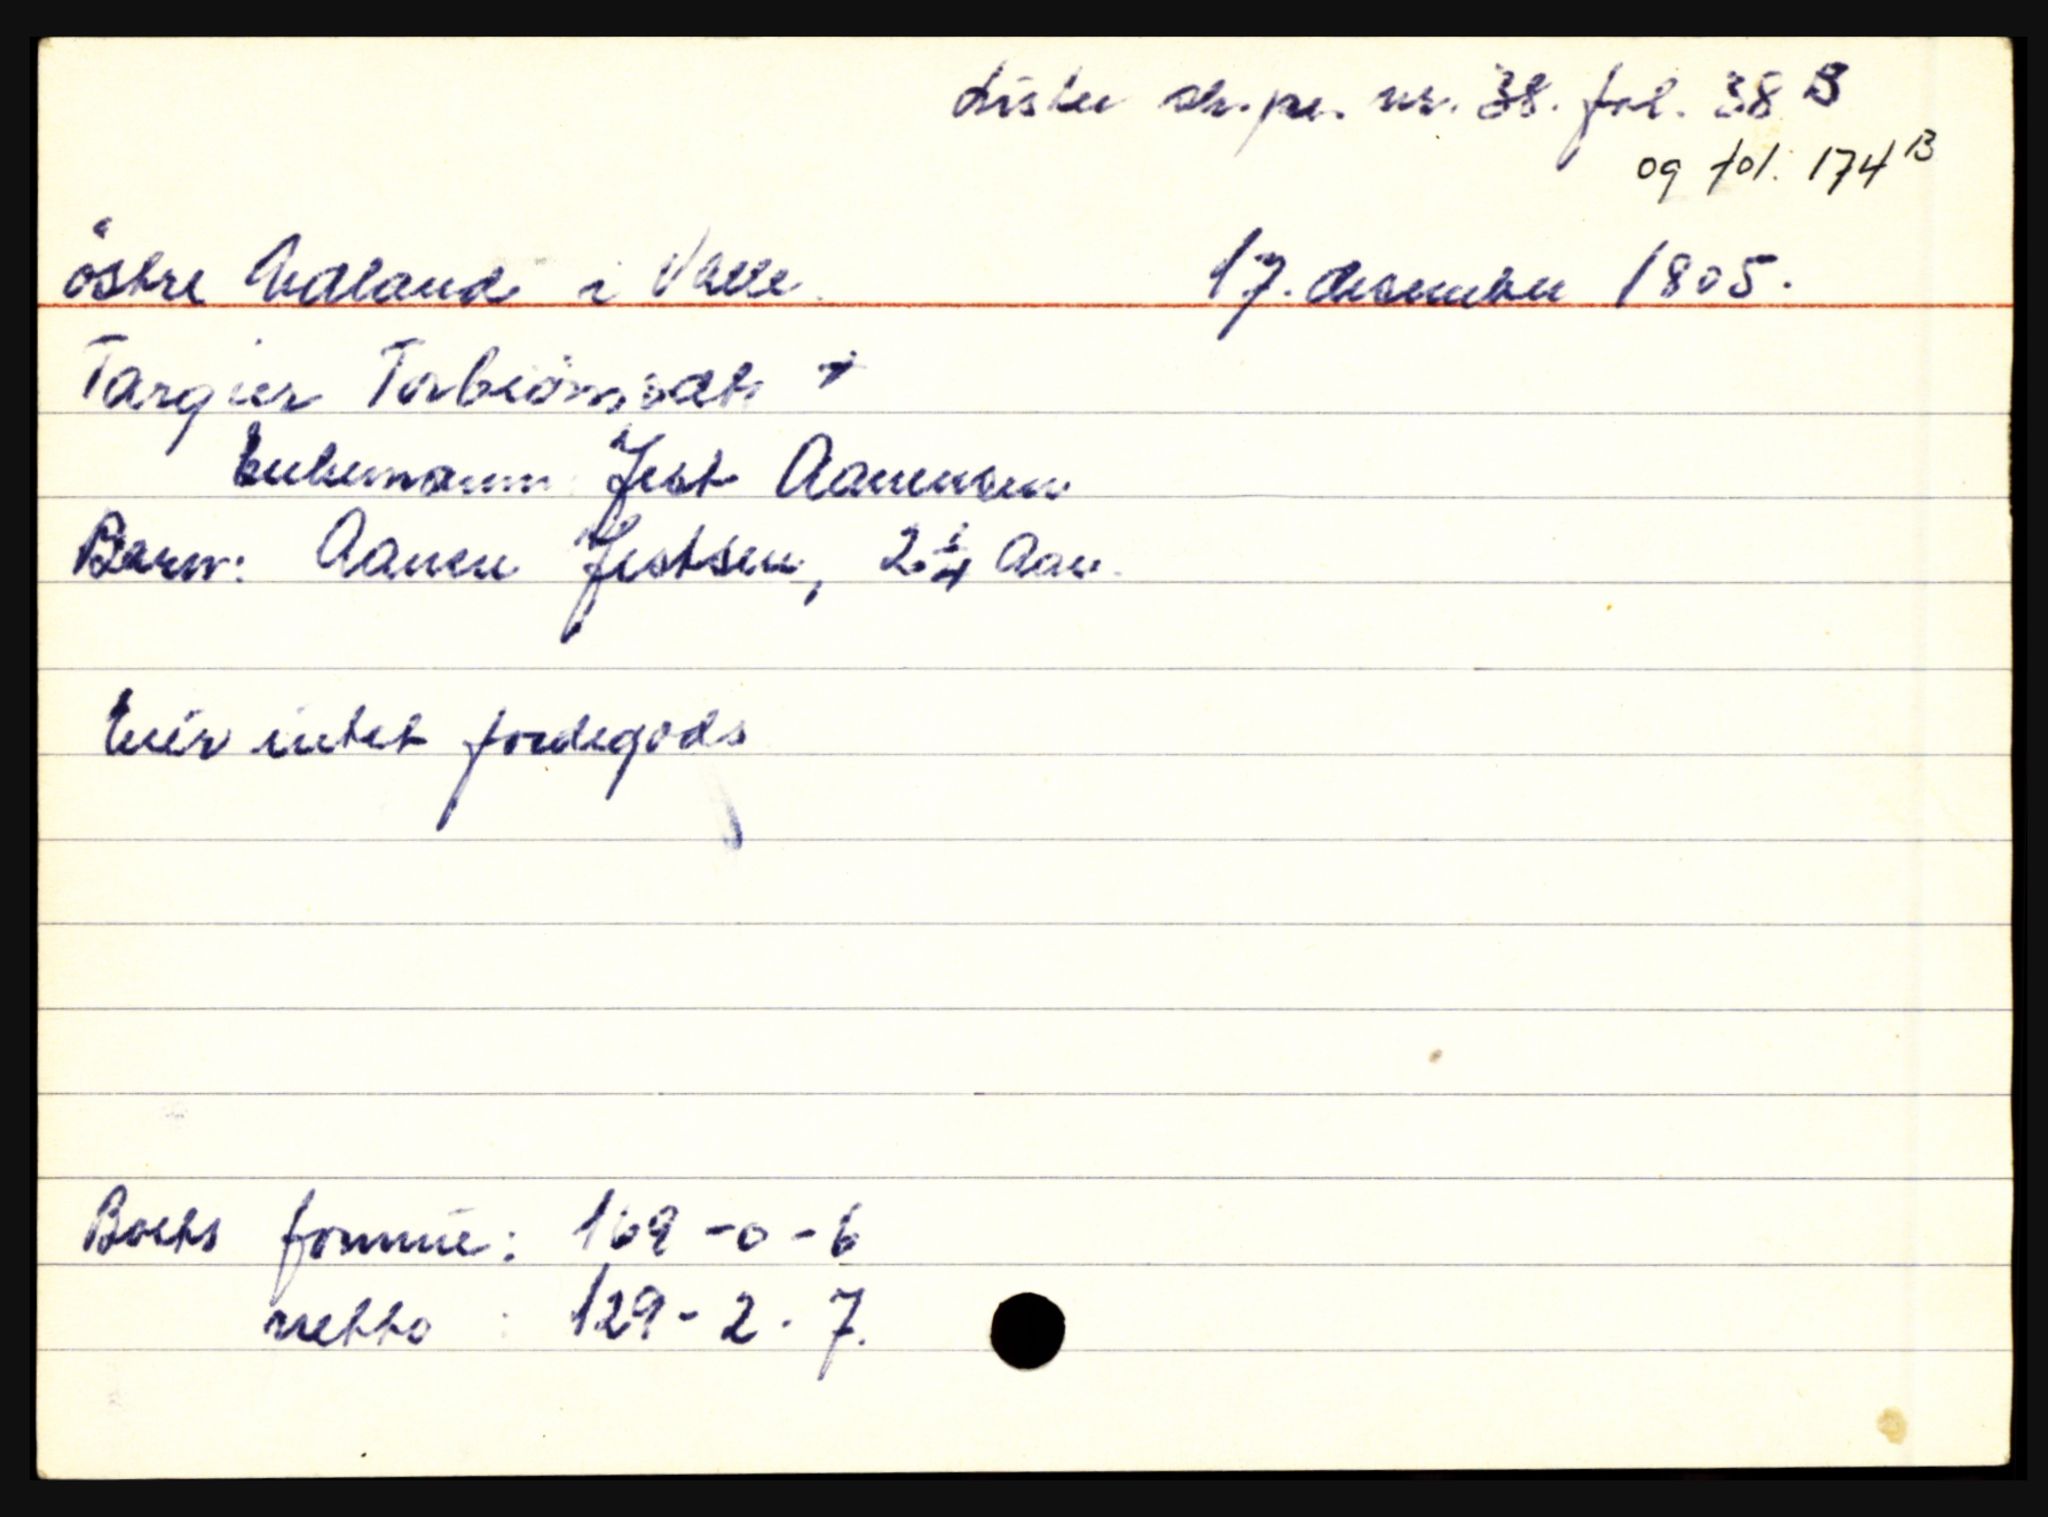 Lister sk.pr. nr. 38. fol. 38 B
og fol. 174 B
östre Udland i Valle. 17. desember 1805.
Targier Torbiörnsdtr +
Enkemann: Jest Aanensen
Barn: Aanen Jestsen, 2 1/4 Aar.
Eier intet jordegods
Boets formue: 169 - 0 - 6
netto : 129 - 2 - 7.